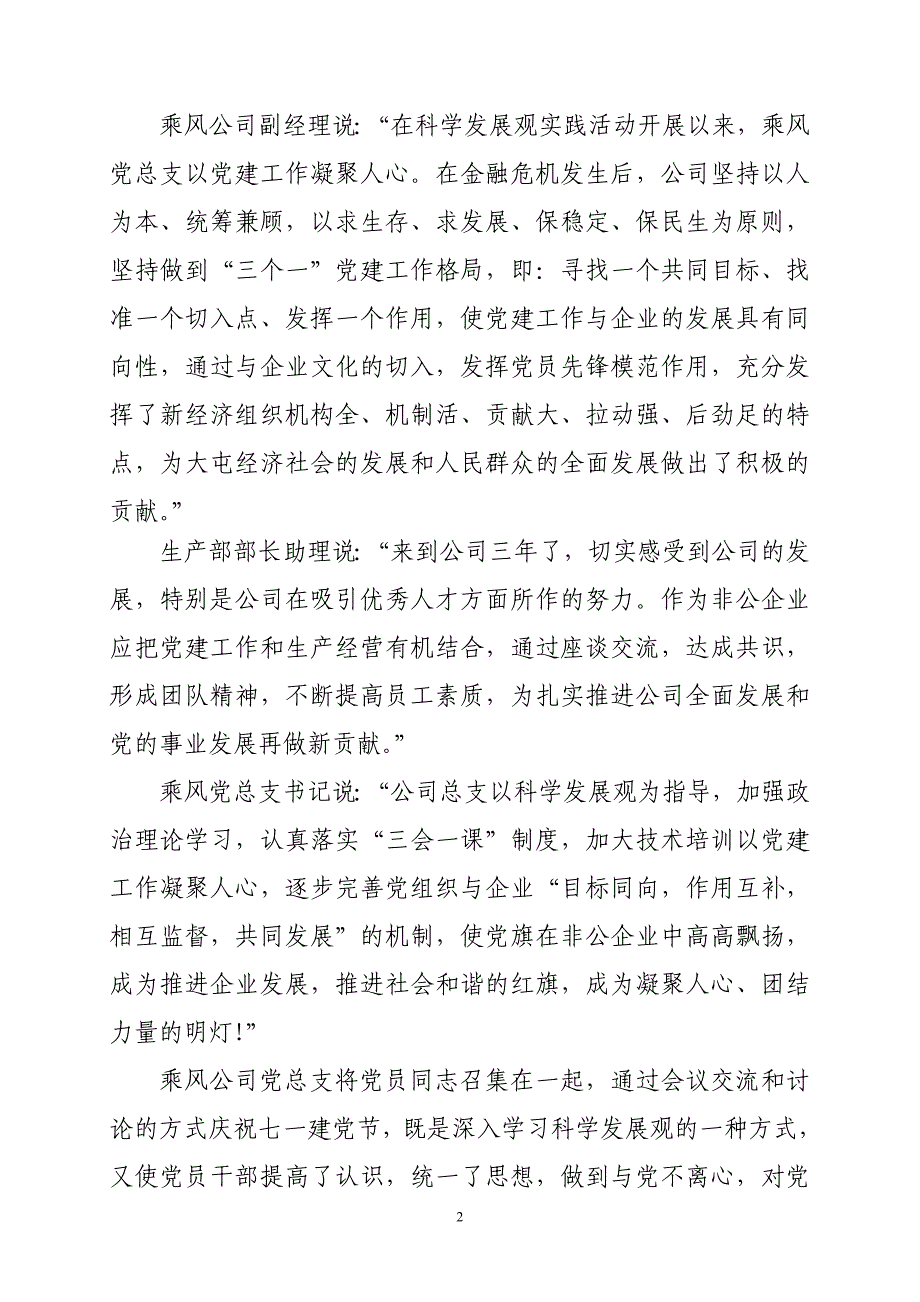 乘风公司副经理说：“在科学发展观实践活动开展以来，乘风
党总支以党建工作凝聚人心。在金融危机发生后，公司坚持以人
为本、统筹兼顾，以求生存、求发展、保稳定、保民生为原则，
坚持做到“三个一”党建工作格局，即：寻找一个共同目标、找
准一个切入点、发挥一个作用，使党建工作与企业的发展具有同
向性，通过与企业文化的切入，发挥党员先锋模范作用，充分发
挥了新经济组织机构全、机制活、贡献大、拉动强、后劲足的特
点，为大屯经济社会的发展和人民群众的全面发展做出了积极的
贡献。”
生产部部长助理说：“来到公司三年了，切实感受到公司的发
展，特别是公司在吸引优秀人才方面所作的努力。作为非公企业
应把党建工作和生产经营有机结合，通过座谈交流，达成共识，
形成团队精神，不断提高员工素质，为扎实推进公司全面发展和
党的事业发展再做新贡献。”
乘风党总支书记说：“公司总支以科学发展观为指导，加强政
治理论学习，认真落实“三会一课”制度，加大技术培训以党建
工作凝聚人心，逐步完善党组织与企业“目标同向，作用互补，
相互监督，共同发展”的机制，使党旗在非公企业中高高飘扬，
成为推进企业发展，推进社会和谐的红旗，成为凝聚人心、团结
力量的明灯！”
乘风公司党总支将党员同志召集在一起，通过会议交流和讨
论的方式庆祝七一建党节，既是深入学习科学发展观的一种方式，
又使党员干部提高了认识，统一了思想，做到与党不离心，对党
2